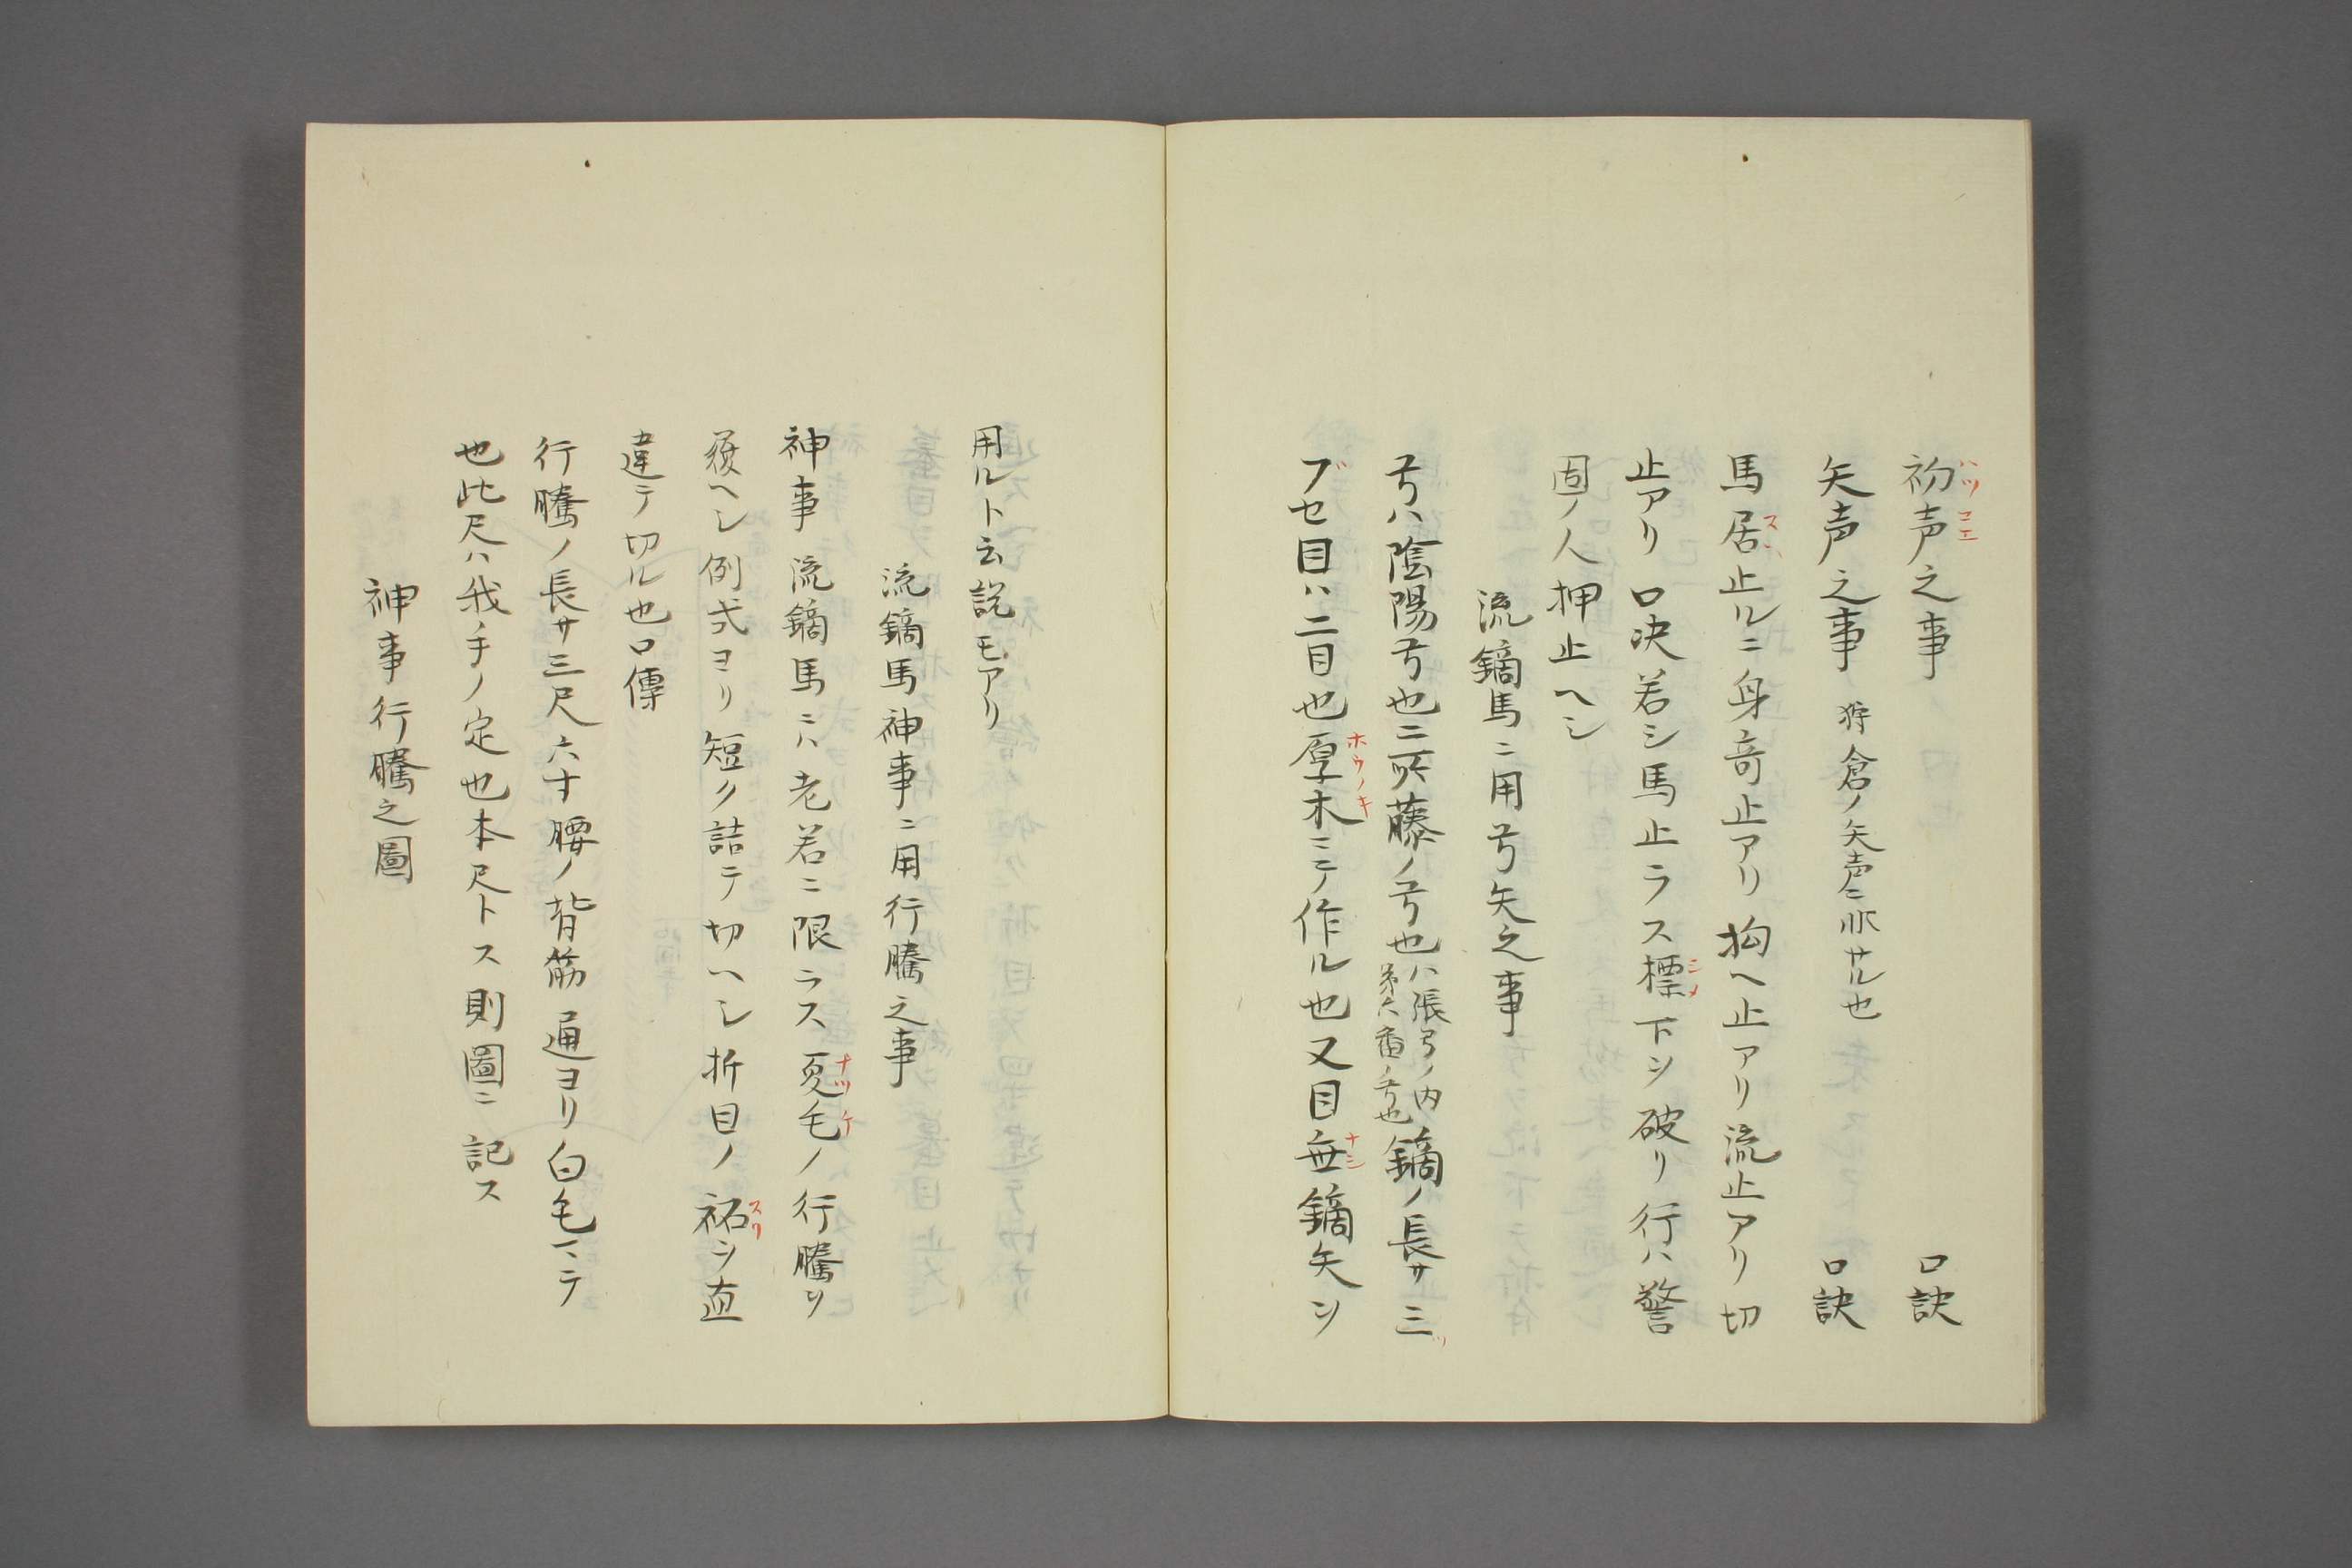 初声之事 口訣
矢声之事 狩倉ノ矢声ニ非サル也 口訣
馬居止ルニ身竒止アリ拘ヘ止アリ流止アリ切
止アリ口决若シ馬止ラス標下ヲ破リ行ハ警
固ノ人押止ヘシ
流鏑馬ニ用弓矢之事
弓ハ陰陽弓也二所藤ノ弓也ハ張弓ノ内
第六番ノ弓也鏑ノ長サ三
ブセ目ハ二目也厚木ニテ作ル也又目無鏑矢ヲ
用ルト云説モアリ
流鏑馬神事ニ用行騰之事
神事流鏑馬ニハ老若ニ限ラス夏毛ノ行騰ヲ
ヘシ例式ヨリ短ク詰テ切ヘシ折目ノ祏ヲ直
違テ切ル也口傳
行騰ノ長サ三尺六寸腰ノ背筋通ヨリ白毛ニテ
也此尺ハ我手ノ定也本尺トス則圖ニ記ス
神事行騰之圖